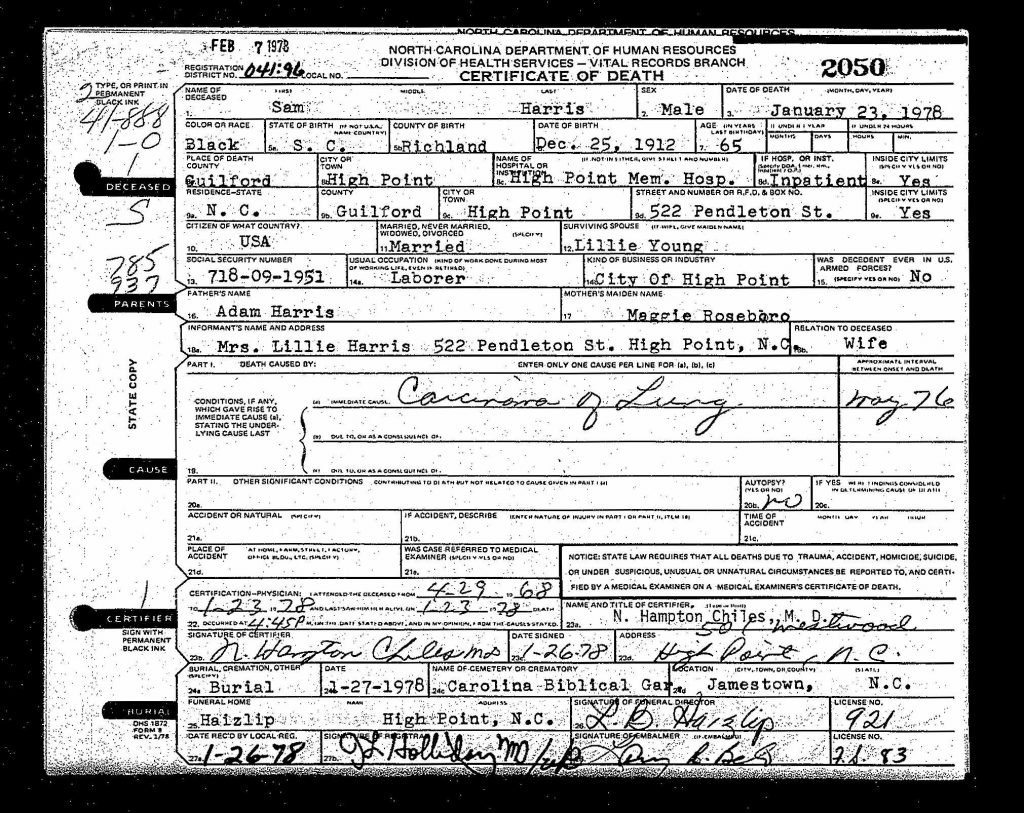 NORTH CAROLINA DEPARTMENT OF HUMAN RESOURCES
FEB 7 1978
NORTH CAROLINA DEPARTMENT OF HUMAN RESOURCES
DIVISION OF HEALTH SERVICES – VITAL RECORDS BRANCH
CERTIFICATE OF DEATH
2050
REGISTRATION DISTRICT NO. 041-96 LOCAL NO.
TYPE, OR PRINT IN PERMANENT BLACK INK
41-888
1-0
1
DECEASED
S
785
937
PARENTS
STATE COPY
CAUSE
1
CERTIFIER
SIGN WITH PERMANENT BLACK INK
BURIAL
DHS 1872
FORM 8
REV. 1/78
NAME OF DECEASED FIRST MIDDLE LAST SEX DATE OF DEATH (MONTH, DAY, YEAR)
1. Sam Harris 2. Male 3. January 23, 1978
COLOR OR RACE STATE OF BIRTH (IF NOT U.S.A., NAME COUNTRY) COUNTY OF BIRTH DATE OF BIRTH AGE (IN YEARS LAST BIRTHDAY) IF UNDER 1 YEAR IF UNDER 24 HOURS
MONTHS DAYS HOURS MIN.
Black 5a. S. C. 5b. Richland Dec. 25, 1912 7. 65
PLACE OF DEATH COUNTY CITY OR TOWN NAME OF HOSPITAL OR INSTITUTION (IF NOT IN EITHER, GIVE STREET AND NUMBER) IF HOSP. OR INST. INSIDE CITY LIMITS (SPECIFY YES OR NO)
Guilford 8b. High Point 8c. High Point Mem. Hosp. 8d. Inpatient 8e. Yes
RESIDENCE–STATE COUNTY CITY OR TOWN STREET AND NUMBER OR R.F.D. & BOX NO. INSIDE CITY LIMITS (SPECIFY YES OR NO)
9a. N. C. 9b. Guilford 9c. High Point 9d. 522 Pendleton St. 9e. Yes
CITIZEN OF WHAT COUNTRY? MARRIED, NEVER MARRIED, WIDOWED, DIVORCED (SPECIFY) SURVIVING SPOUSE (IF WIFE, GIVE MAIDEN NAME)
10. USA 11. Married 12. Lillie Young
SOCIAL SECURITY NUMBER USUAL OCCUPATION (KIND OF WORK DONE DURING MOST OF WORKING LIFE, EVEN IF RETIRED) KIND OF BUSINESS OR INDUSTRY WAS DECEDENT EVER IN U.S. ARMED FORCES?
13. 718-09-1951 14a. Laborer 14b. City Of High Point 15. (SPECIFY YES OR NO) No
FATHER'S NAME MOTHER'S MAIDEN NAME
16. Adam Harris 17 Maggie Roseboro
INFORMANT'S NAME AND ADDRESS RELATION TO DECEASED
18a. Mrs. Lillie Harris 522 Pendleton St. High Point, N.C. 18b. Wife
PART I. DEATH CAUSED BY: ENTER ONLY ONE CAUSE PER LINE FOR (a), (b), (c) APPROXIMATE INTERVAL BETWEEN ONSET AND DEATH
CONDITIONS, IF ANY, WHICH GAVE RISE TO IMMEDIATE CAUSE (a), STATING THE UNDERLYING CAUSE LAST
(a) IMMEDIATE CAUSE. Carcinoma of Lung May 76
(b) DUE TO, OR AS A CONSEQUENCE OF:
19. (c) DUE TO, OR AS A CONSEQUENCE OF:
PART II. OTHER SIGNIFICANT CONDITIONS CONTRIBUTING TO DEATH BUT NOT RELATED TO CAUSE GIVEN IN PART I (a) AUTOPSY? (YES OR NO) IF YES WERE FINDINGS CONSIDERED IN DETERMINING CAUSE OF DEATH
20a. 20b. no 20c.
ACCIDENT OR NATURAL (SPECIFY) IF ACCIDENT, DESCRIBE (ENTER NATURE OF INJURY IN PART I OR PART II, ITEM 18) TIME OF ACCIDENT MONTH DAY YEAR HOUR
21a. 21b. 21c.
PLACE OF ACCIDENT AT HOME, FARM, STREET, FACTORY, OFFICE BLDG., ETC. (SPECIFY) WAS CASE REFERRED TO MEDICAL EXAMINER (SPECIFY YES OR NO)
21d. 21e.
NOTICE: STATE LAW REQUIRES THAT ALL DEATHS DUE TO TRAUMA, ACCIDENT, HOMICIDE, SUICIDE,
OR UNDER SUSPICIOUS, UNUSUAL OR UNNATURAL CIRCUMSTANCES BE REPORTED TO, AND CERTI-
FIED BY A MEDICAL EXAMINER ON A MEDICAL EXAMINER'S CERTIFICATE OF DEATH.
CERTIFICATION–PHYSICIAN: I ATTENDED THE DECEASED FROM 4-29 19 68
TO 1-23 19 78 AND LAST SAW HIM/HER ALIVE ON 1-23 19 78 DEATH
22. OCCURRED AT 4:45P M, ON THE DATE STATED ABOVE, AND IN MY OPINION, FROM THE CAUSES STATED
NAME AND TITLE OF CERTIFIER, (TYPE OR PRINT)
23a. N. Hampton Chiles, M. D.
SIGNATURE OF CERTIFIER DATE SIGNED ADDRESS 501 Westwood
23b. N. Hampton Chiles MD 23c. 1-26-78 23d. High Point, N.C.
BURIAL, CREMATION, OTHER (SPECIFY) DATE NAME OF CEMETERY OR CREMATORY LOCATION (CITY, TOWN, OR COUNTY) (STATE)
24a. Burial 24b. 1-27-1978 24c. Carolina Biblical Gar. 24d. Jamestown, N.C.
FUNERAL HOME NAME ADDRESS SIGNATURE OF FUNERAL DIRECTOR LICENSE NO.
25. Haizlip High Point, N.C. 26. L B Haizlip 921
DATE REC'D BY LOCAL REG. SIGNATURE OF REGISTRAR SIGNATURE OF EMBALMER (IF EMBALMED) LICENSE NO.
27a. 1-26-78 27b. Holliday MD 83